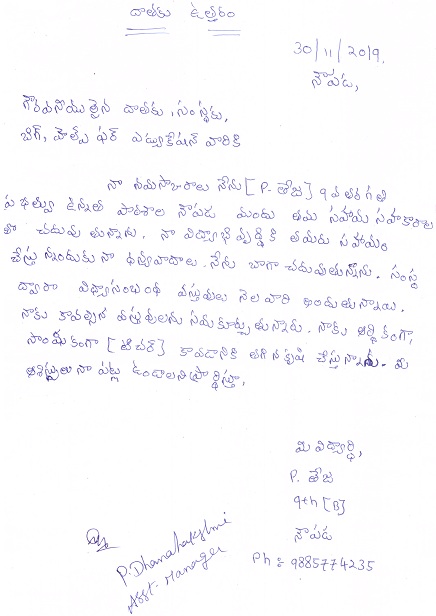 దాతకు ఉత్తరం
30/11/2019.
నౌపడ,
గౌరవనీయులైన దాతకు, సంస్థకు,
బిగ్, హెల్ప్ ఫర్ ఎడ్యుకేషన్ వారికి
నా నమస్కారాలు నేను [P. తేజ] 9వ తరగతి
ప్రభుత్వ ఉన్నత పాఠశాల నౌపడ నందు తమ సహాయ సహకారాల
తో చదువుతున్నాను. నా విద్యాభివృద్ధికి తమరు సహాయం
చేస్తున్నందుకు నా ధన్యవాదాలు. నేను బాగా చదువుతున్నాను. సంస్థ
ద్వారా విద్యాసంబంధ వస్తువులు నెల వారి అందుతున్నాయి.
నాకు కావల్సిన వస్తువులను సమకూర్చుతున్నారు. నాకు ఆర్థికంగా,
సాంఘీకంగా [టీచర్] కావడానికి తగిన కృషి చేస్తున్నాను. మీ
ఆశీస్సులు నా పట్ల ఉండాలని ప్రార్థిస్తూ,
మీ విద్యార్థి,
P. తేజ
9th [B]
నౌపడ
Ph : 9885774235
P. Dhanalakshmi
Asst. Manager